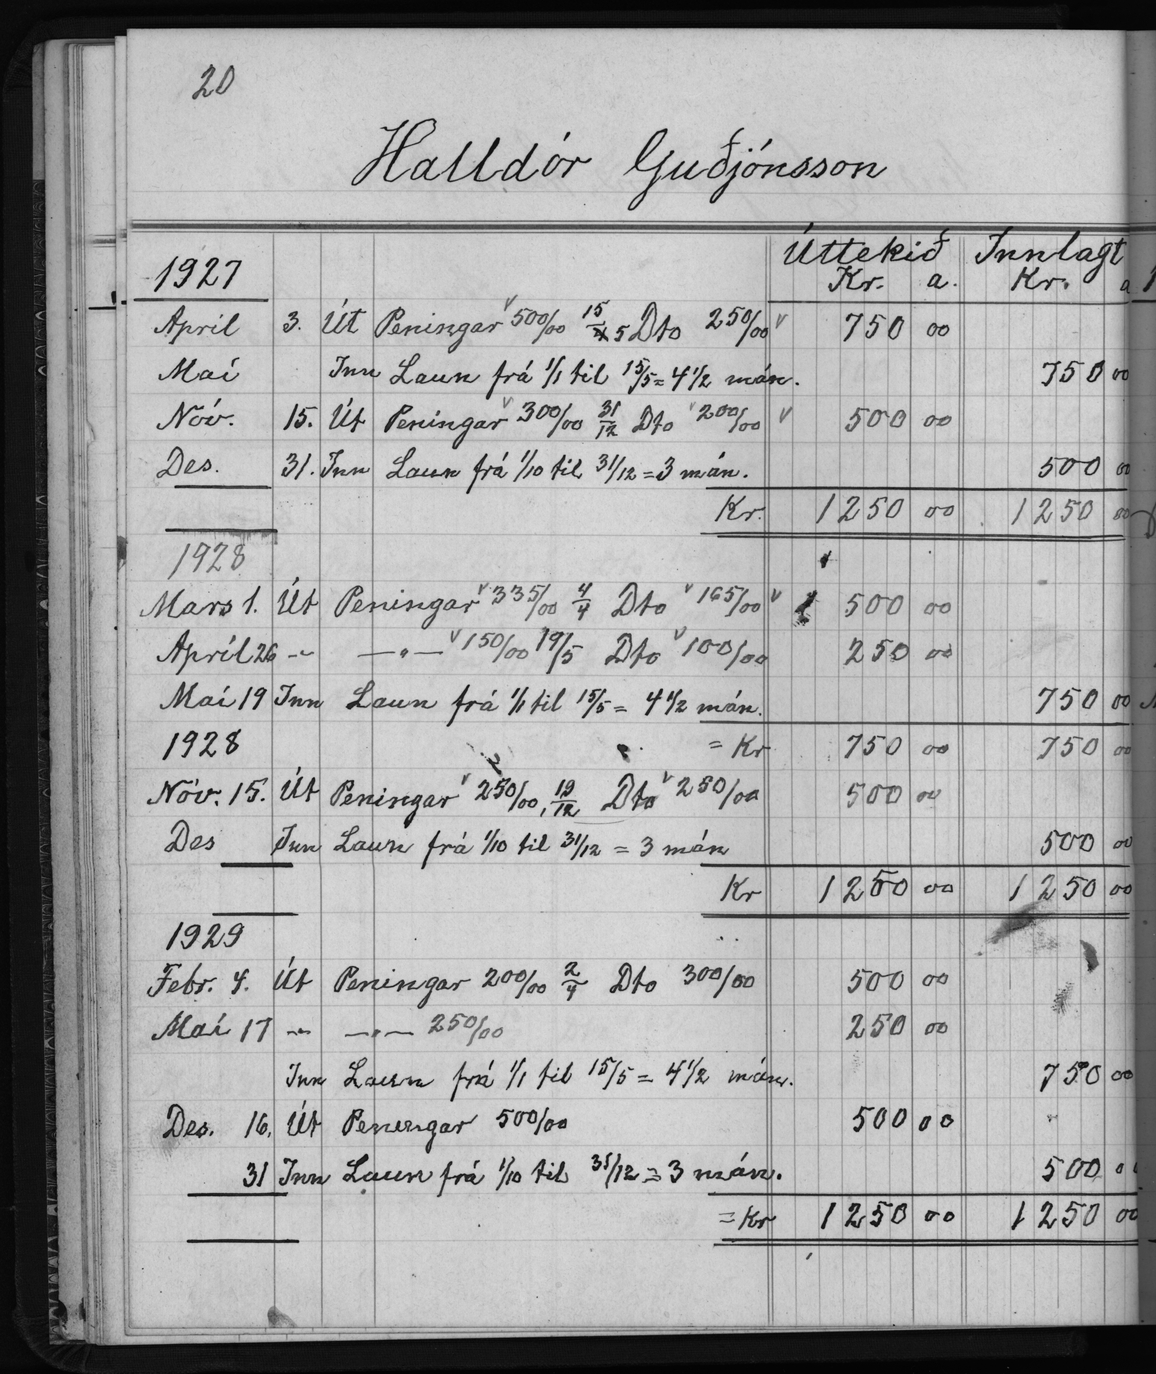 20
Halldór Guðjónsson
Úttekið Innlagt
1927 Kr. a. Kr. a
Apríl 3. Út Peningar 500/00 15/5 Dto 250/00 750 00
Maí Inn Laun frá 1/1 til 15/5 = 4 1/2 mán. 750 00
Nóv. 15. Út Peningar 300/00 31/12 Dto 200/00 500 00
Des. 31. Inn Laun frá 1/10 til 31/12 = 3 mán. 500 00
Kr. 1250 00 1250 00
1928
Mars 1. Út Peningar 335/00 4/4 Dto 165/00 500 00
Apríl 26 -"- —"— 150/00 19/5 Dto 100/00 250 00
Maí 19 Inn Laun frá 1/1 til 15/5 = 4 1/2 mán. 750 00
1928 = Kr 750 00 750 00
Nóv. 15. Út Peningar 250/00, 19/12 Dto 250/00 500 00
Des Inn Laun frá 1/10 til 31/12 = 3 mán 500 00
Kr 1250 00 1250 00
1929
Febr. 4. Út Peningar 200/00 2/4 Dto 300/00 500 00
Maí 17 -"- —"— 250/00 250 00
Inn Laun frá 1/1 til 15/5 = 4 1/2 mán. 750 00
Des. 16. Út Peningar 500/00 500 00
31 Inn Laun frá 1/10 til 31/12 = 3 mán. 500 00
= Kr 1250 00 1250 00